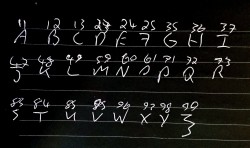 11 12 13 24 24 25 35 36 37
A B C D E F G H I
47 48 49 59 60 61 71 72 73
J K L M N O P Q R
83 84 85 95 96 97 98 99
S T U V W X Y Z